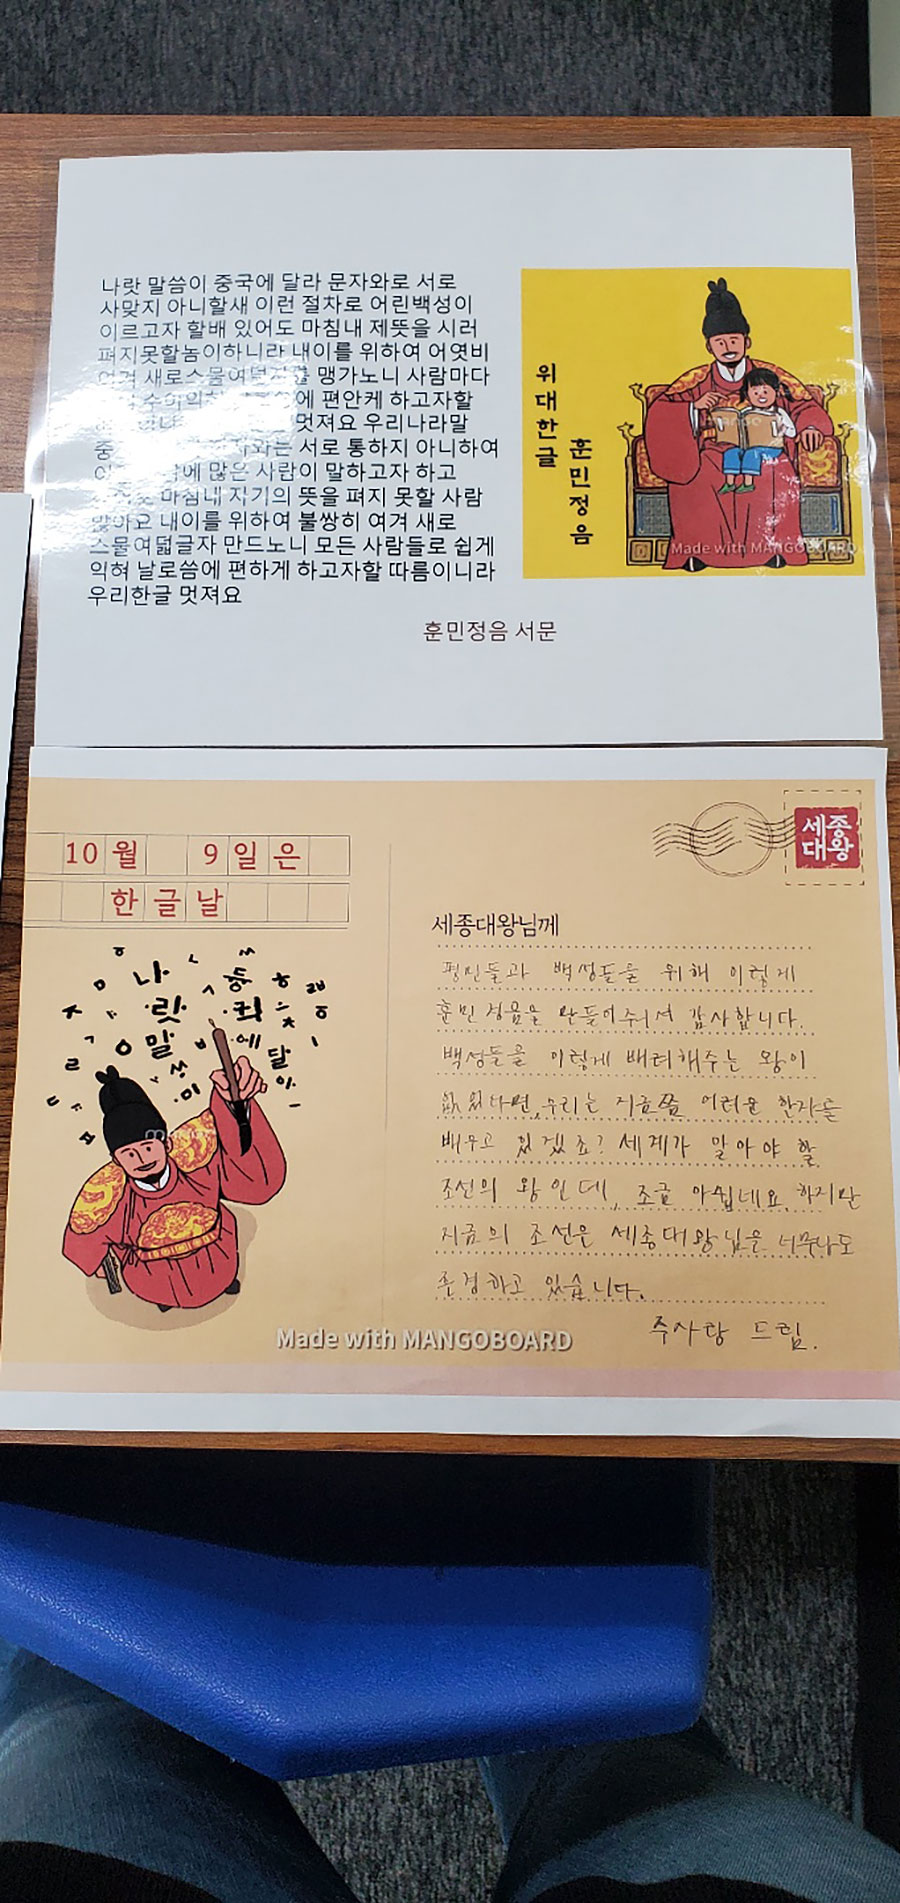 나랏 말씀이 중국에 달라 문자와로 서로
사맞지 아니할새 이런 절차로 어린백성이
이르고자 할배 있어도 마침내 제뜻을 시러
펴지못할놈이하니라 내이를 위하여 어엿비
새로스물여덟자를 맹가노니 사람마다
편안케 하고자할
멋져요 우리나라말
서로 통하지 아니하여
많은 사람이 말하고자 하고
마침내 자기의 뜻을 펴지 못할 사람
많아요 내이를 위하여 불쌍히 여겨 새로
스물여덟글자 만드노니 모든 사람들로 쉽게
익혀 날로씀에 편하게 하고자할 따름이니라
우리한글 멋져요
위대한글
훈민정음
Made with MANGOBOARD
훈민정음 서문
10월 9일은
한글날
세종
대왕
세종대왕님께
평민들과 백성들을 위해 이렇게
훈민정음을 만들어주셔서 감사합니다.
백성들을 이렇게 배려해주는 왕이
없었다면, 우리는 지금쯤 어려운 한자를
배우고 있겠죠? 세계가 알아야 할
조선의 왕인데, 조금 아쉽네요. 하지만
지금의 조선은 세종대왕님을 너무나도
존경하고 있습니다.
주사랑 드림.
나
랏
말
에
달
Made with MANGOBOARD